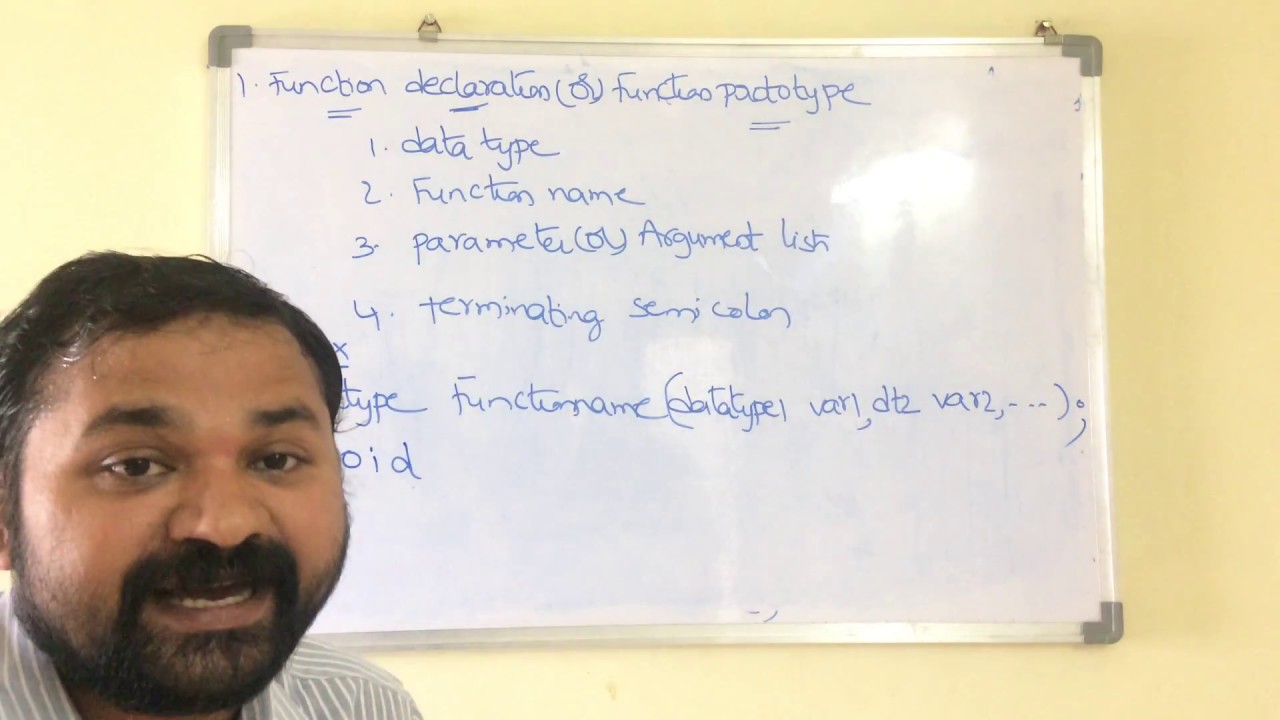 1. Function declaration (or) Function pactotype
1. data type
2. Function name
3. parameter (or) Argument list
4. terminating semicolon
x
type Functionname(datatype1 var1, dt2 var2, ---);
oid